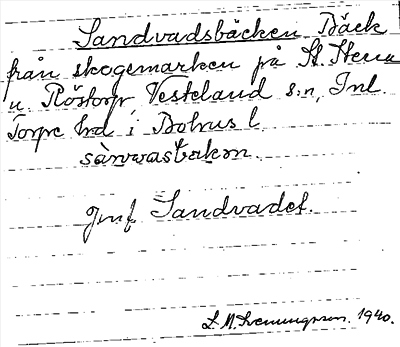 Sandvadsbäcken Bäck
från skogsmarken på St. Stena
u. Röstorp Vesteland s:n, Inl.
Torpe hd i Bohus l
sànvasbækən.
Jmf Sandvadet.
L. M. Svenungsson. 1940.